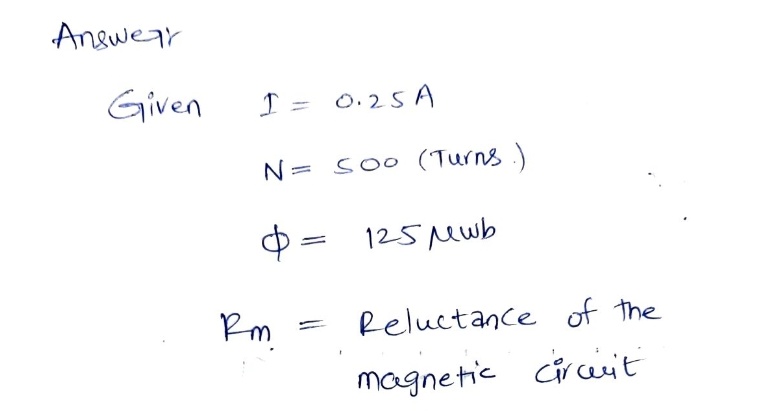 Answer
Given I = 0.25 A
N = 500 (Turns.)
ϕ = 125 μwb
Rm = Reluctance of the
magnetic circuit